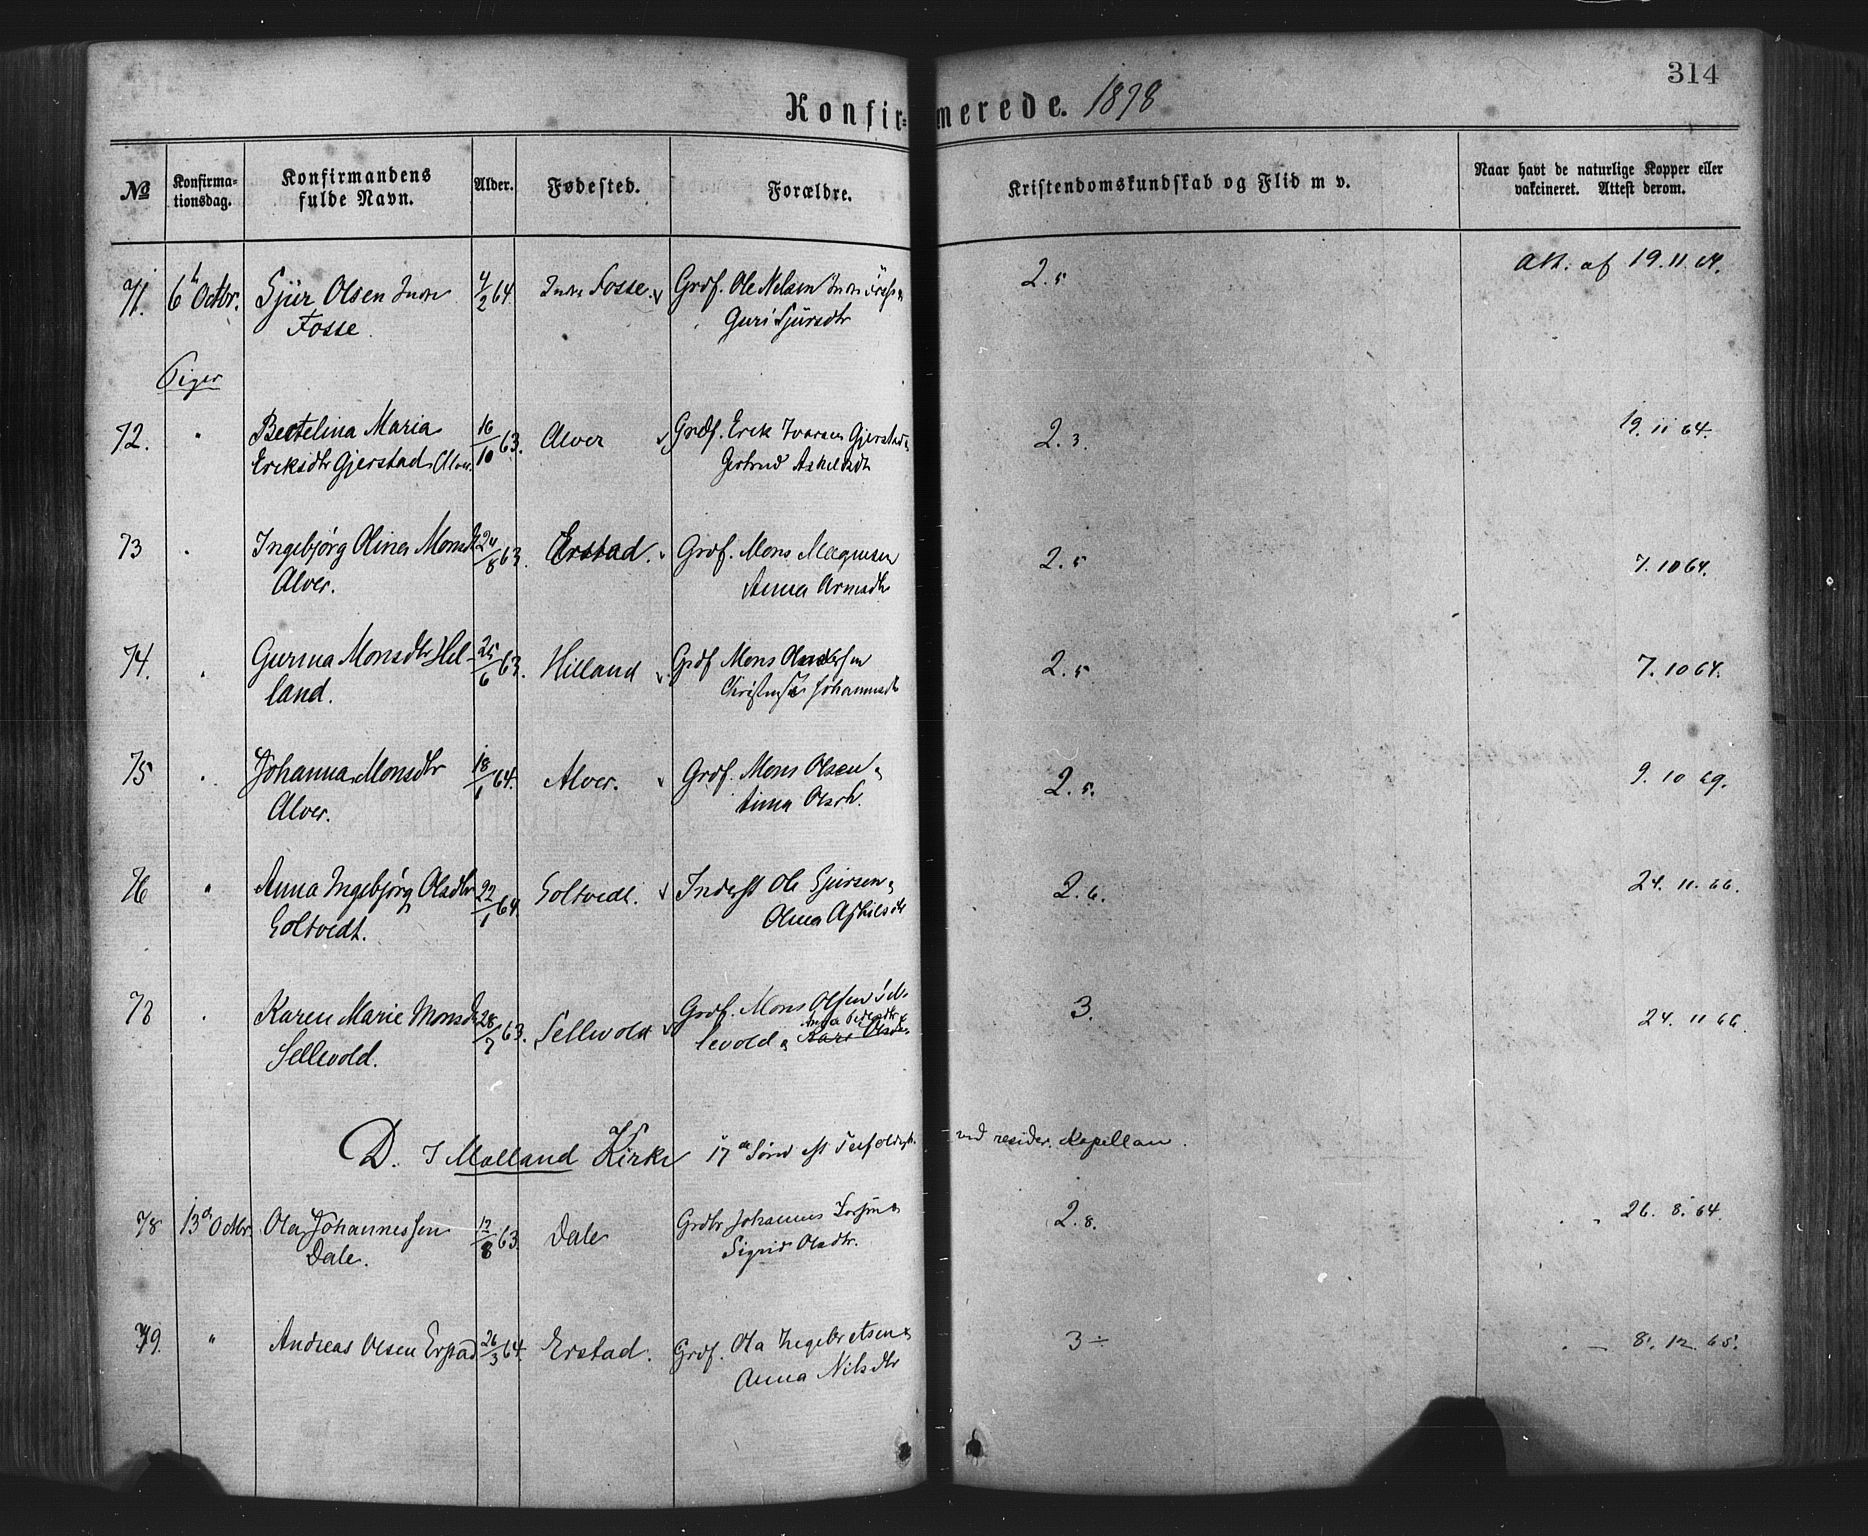 314
Konfirmerede. 1878
No
Konfirma-
tionsdag.
Konfirmandens
fulde Navn.
Alder.
Fødested.
Forældre.
Kristendomskundskab og Flid m v.
Naar havt de naturlige Kopper eller
vakcineret. Attest derom.
71. 6 Octbr. Sjur Olsen Indre 4/2 64. Indre Fosse. Grdf. Ole Nelsen Indre 2.5 Att. af 19.11.64.
Fosse. Guri Sjursdtr
Piger
72. " Bertelina Maria 16/10 63. Alver Grdf. Erik Ivarsen Gjerstad 2.3. 19.11 64.
Eriksdtr Gjerstad, Alver Gertrud Askelsdtr
73 " Ingebjørg Olina Monsdtr 24/8 63. Erstad. Grdf. Mons Magnusen 2.5 7.10 64.
Alver. Anna Arnesdtr
74. " Gurina Monsdtr Hel- 25/6 63. Hilland Grdf Mons Andersen 2.5 7.10 64.
land. Johannesdtr
75 " Johanna Monsdtr 18/1 64. Alver. Grdf. Mons Olsen 2.5. 9.10 69.
Alver. Anna Olsdtr.
76 " Anna Ingebjørg Olsdtr 22/1 64. Soltvedt. Inderst Ole Sjursen 2.6. 24.11.66.
Soltvedt. Olina Askelsdtr
77 " Karen Marie Monsdtr 28/7 63. Sellevold Grdf. Mons Olsen Sel- 3. 24.11 66.
Anna Pedersdtr
Sellevold. levold & Kari Olsdtr
D. I Mælland Kirke 17de Sønd eft Trefoldigh. ved resider. Kapellan.
78 13de Octbr. Ola Johannessen 12/8 63. Dale Grdbr Johannes 2.8. " 26.8.64.
Dale. Sigrid Olsdtr.
79. " Andreas Olsen Erstad 26/3 64. Erstad. Grdf. Ola Ingebretsen 3 ÷ " 8.12 65.
Anna Nilsdtr